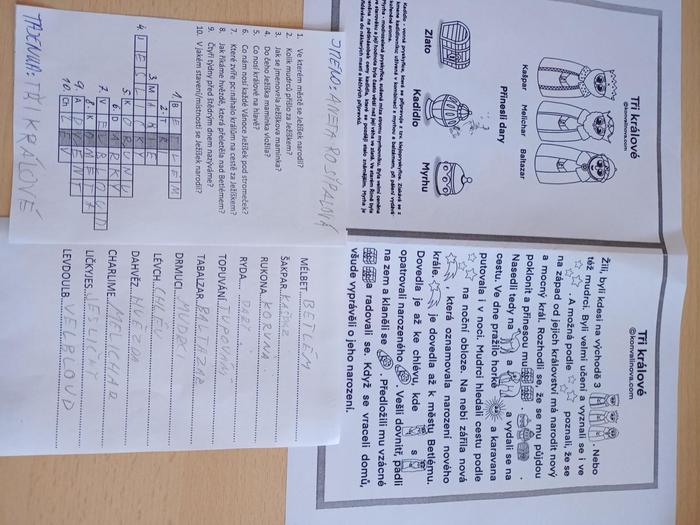 Tři králové
©konvalinova.com
Kašpar Melichar Baltazar
Přinesli dary
Zlato Kadidlo Myrhu
Kadidlo - vonná pryskyřice, která se připravuje z tzv. klejopryskyřice. Získává se z
Tři králové
©konvalinova.com
Žili, byli kdesi na východě 3 . Nebo
též mudrci. Byli velmi učení a vyznali se i ve
. A možná podle poznali, že se
na západ od jejich království má narodit nový
a mocný král. Rozhodli se, že se mu půjdou
poklonit a přinesou mu .
Nasedli tedy na a a vydali se na
cestu. Ve dne pražilo horké a karavana
putovala i v noci. Mudrci hledali cestu podle
na noční obloze. Na nebi zářila nová
, která oznamovala narození nového
krále. je dovedla až k městu Betlému.
Dovedla je až ke chlévu, kde s
opatrovali narozeného . Vešli dovnitř, padli
na zem a klaněli se . Předložili mu vzácné
a radovali se. Když se vraceli domů,
všude vyprávěli o jeho narození.
JMÉNO: ANETA ROSÍPALOVÁ
1. Ve kterém městě se Ježíšek narodil?
2. Kolik mudrců přišlo za Ježíškem?
3. Jak se jmenovala Ježíškova maminka?
4. Do čeho Ježíška maminka vložila?
5. Co nosí králové na hlavě?
6. Co nám nosí každé Vánoce Ježíšek pod stromeček?
7. Které zvíře pomáhalo králům na cestě za Ježíškem?
8. Jak říkáme hvězdě, která přeletěla nad Betlémem?
9. Čtyři týdny před Štědrým dnem nazýváme?
10. V jakém stavení/místnosti se Ježíšek narodil?
1. BETLÉM
2. TŘI
3. MARIE
4. JESLIČKY
5. KORUNU
6. DÁRKY
7. VELBLOUD
8. KOMETA
9. ADVENT
10. CHLÉV
TAJENKA: TŘI KRÁLOVÉ
MÉLBET BETLÉM
ŠAKPAR KAŠPAR
RUKONA KORUNA
RYDA DARY
TOPUVÁNÍ
TABALZAR BALTAZAR
DRMUCI MUDRCI
LÉVCH CHLÉV
DAHVĚZ HVĚZDA
CHARLIME MELICHAR
LIČKYJES JESLIČKY
LEVDOULB VELBLOUD